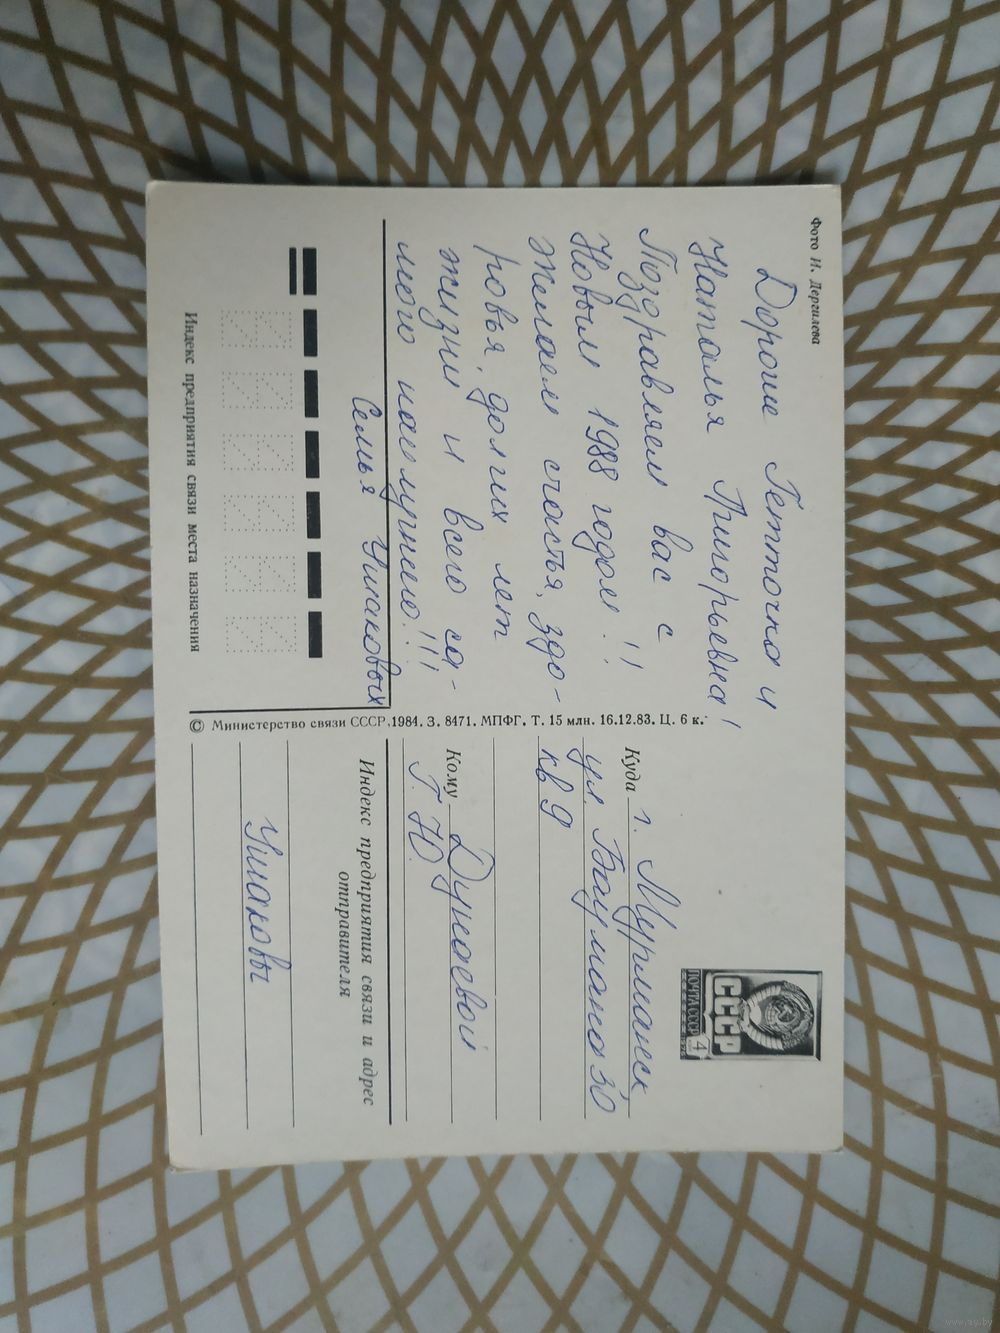 Фото И. Дергилева
Дорогие Гетточка и
Наталья Григорьевна!
Поздравляем вас с
Новым 1988 годом!!
Желаем счастья, здо-
ровья, долгих лет
жизни и всего са-
мого наилучшего!!!
Семья Ушаковых
Индекс предприятия связи места назначения
© Министерство связи СССР, 1984. З. 8471. МПФГ. Т. 15 млн. 16.12.83. Ц. 6 к.
ПОЧТА СССР 4
СССР
Куда г. Мурманск
ул. Баумана 30
кв 9
Кому Дунаевой
Г. Ю.
Индекс предприятия связи и адрес
отправителя
Ушаковы
www.ay.by